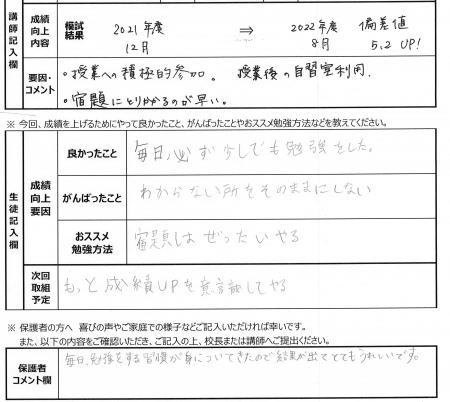 講師記入欄
成績向上内容
模試結果
2021年度 12月 ⇒ 2022年度 8月 偏差値 5.2 UP!
要因・コメント
・授業への積極的参加。 授業後の自習室利用.
・宿題にとりかかるのが早い。
※ 今回、成績を上げるためにやって良かったこと、がんばったことやおススメ勉強方法などを教えてください。
生徒記入欄
成績向上要因
良かったこと
毎日必ず少しでも勉強をした。
がんばったこと
わからない所をそのままにしない
おススメ勉強方法
宿題はぜったいやる
次回取組予定
もっと成績UPを意識してやる
※ 保護者の方へ 喜びの声やご家庭での様子などご記入いただければ幸いです。
また、以下の内容をご確認いただき、ご記入の上、校長または講師へご提出ください。
保護者コメント欄
毎日、勉強をする習慣が身についてきたので結果が出てとてもうれしいです。